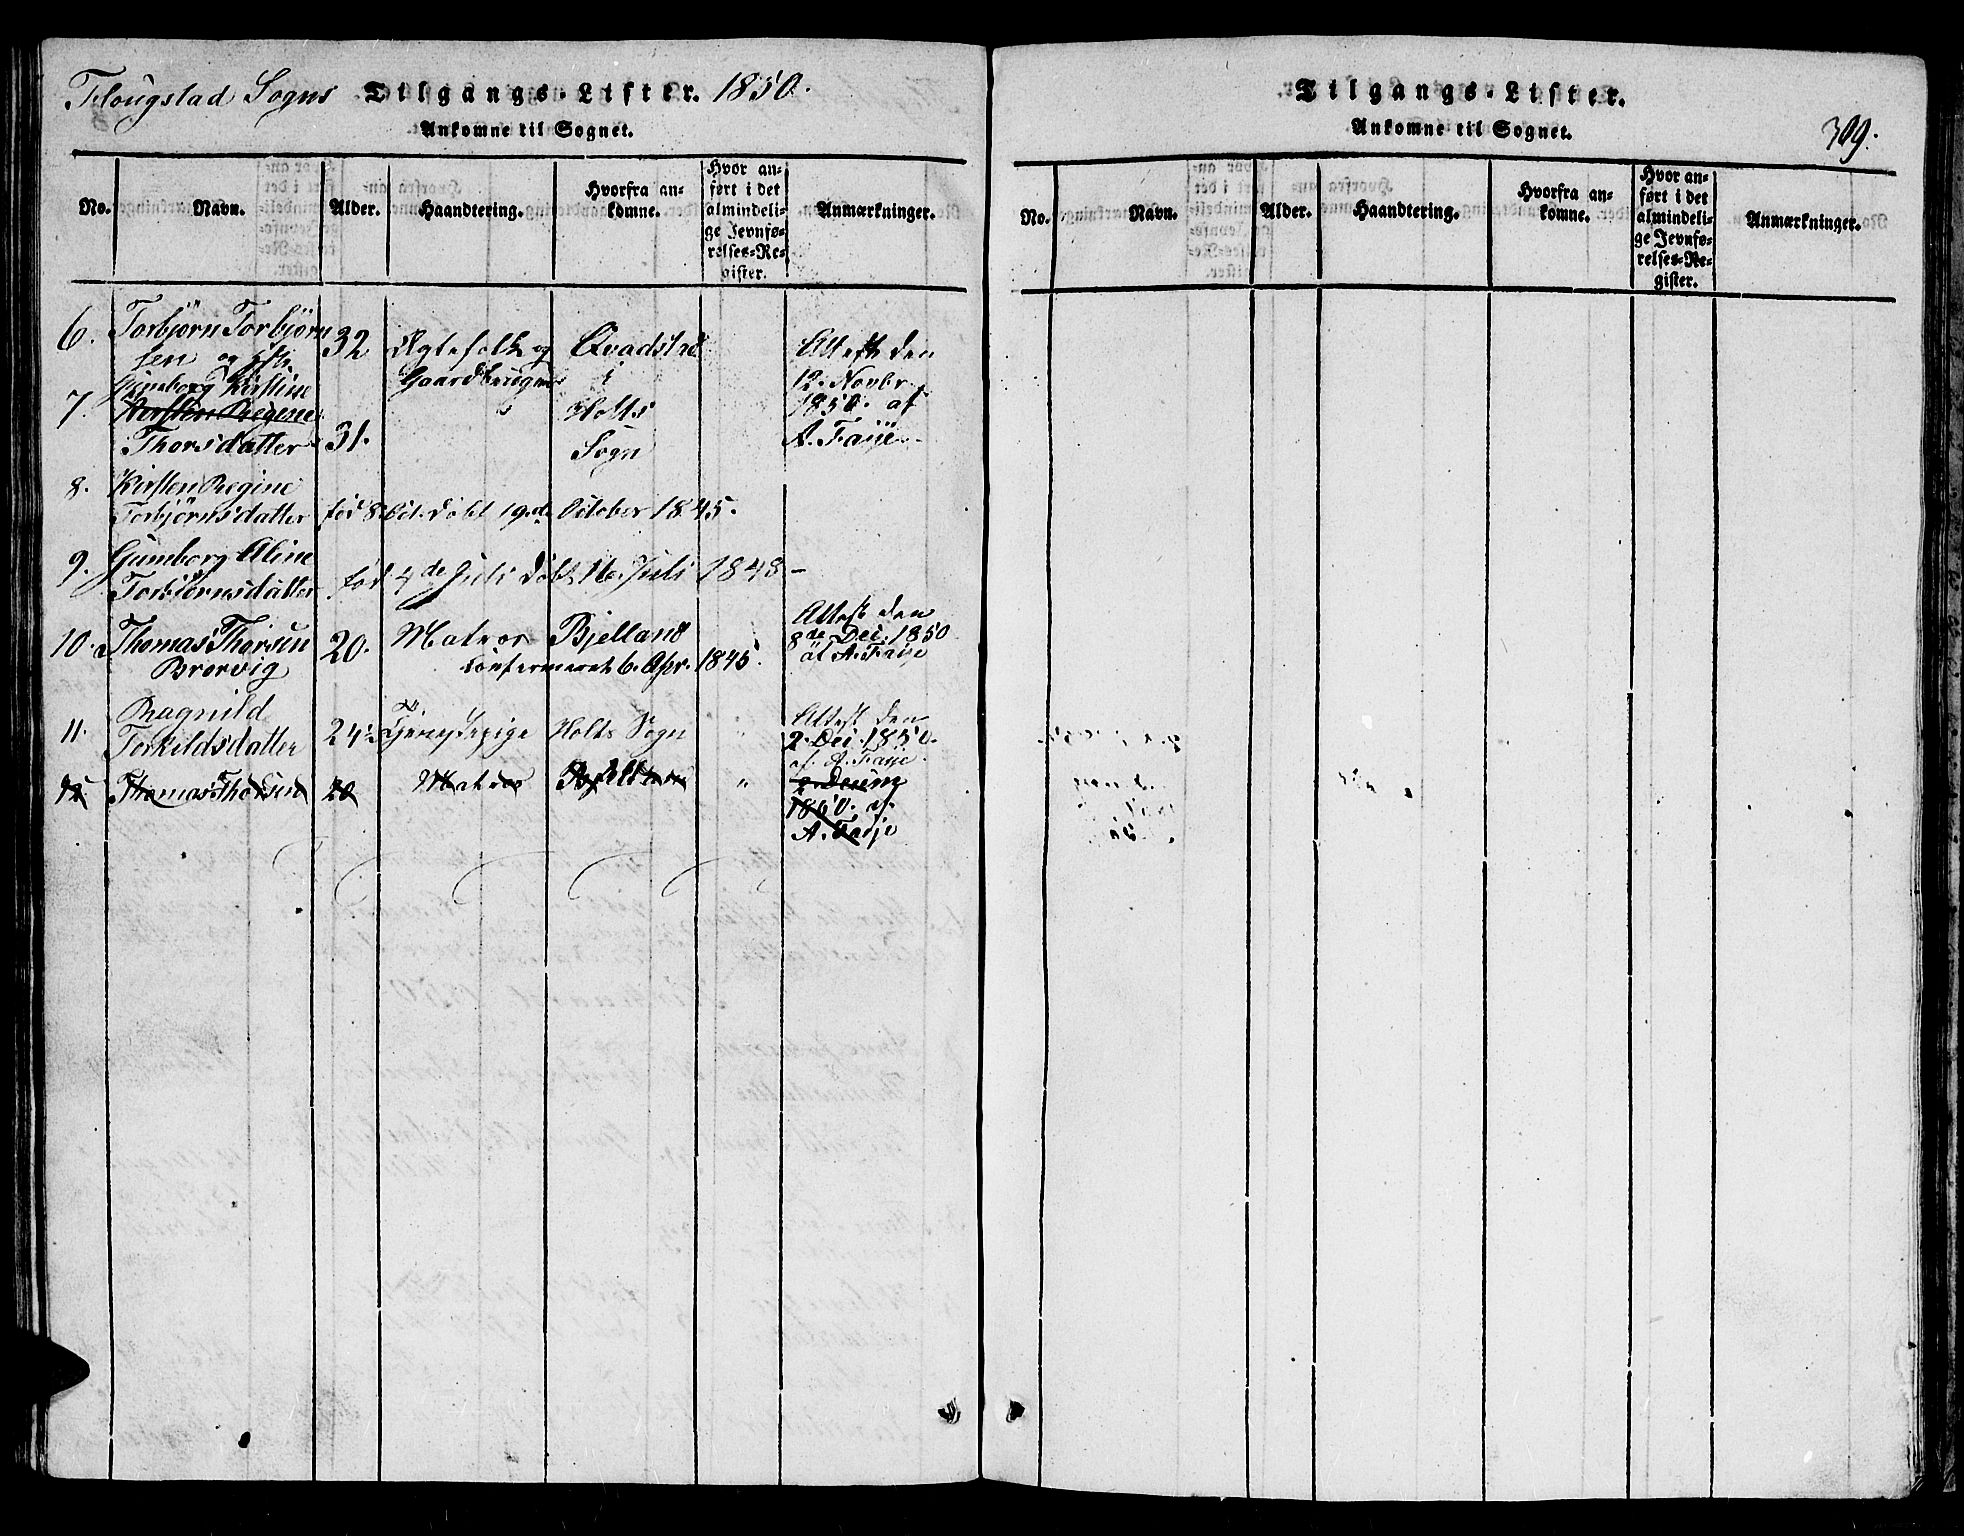 Flougstad Sogns Tilgangs-Lister. 1850.
Ankomne til Sognet.
No. Navn. Alder. Haandtering. Hvorfra ankomne. Hvor anført i det almindelige Jevnførelses-Register. Anmærkninger.
6. Torbjørn Torbjørnsen og 32 Ægtefolk og Gaardbruger Qvadstad i Holts Sogn Attest den 12. Novbr. 1850. af A. Faije.
7. Gunborg Kirstine
Kirsten Regine
Thorsdatter 31.
8. Kirsten Regine
Torbjørnsdatter fød 8. Oct. døbt 19de October 1845.
9. Gunborg Aline
Torbjørnsdatter fød 4de Juli døbt 16. Juli 1848 –
10. Thomas Thorsen 20. Matros Bjelland Attest den 8de Dec. 1850 af A. Faije
Brorvig confirmeret 6. Apr. 1845.
11. Ragnild
Torkildsdatter 24½ Tjenestepige Holts Sogn " Attest den 2. Dec. 1850. af A. Faije.
12 Thomas Thorsen 20 Matros Bjelland " 
1850. af
A. Faije
Tilgangs-Lister.
Ankomne til Sognet.
309.
No. Navn. Alder. Haandtering. Hvorfra ankomne. Hvor anført i det almindelige Jevnførelses-Register. Anmærkninger.